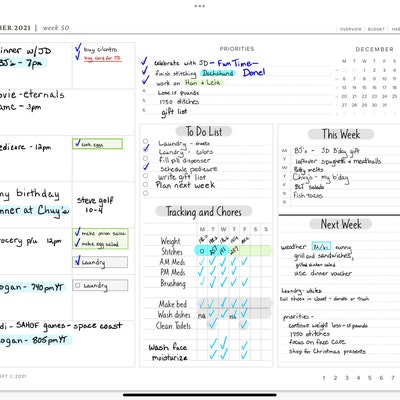 BER 2021 | week 50
OVERVIEW | BUDGET | HAB
inner w/JD
BJ's - 7pm
buy cilantro
buy card for JD
ovie - eternals
ame - 3pm
edicare - 12pm
cook eggs
ny birthday
nner at Chuy's
Steve golf
10-4
rocery p/u 12pm
make onion salsa
make egg salad
Laundry
ogan - 740pm YT
Laundry
di - SAHOF games - space coast
ogan - 805pm YT
PT © 2021
PRIORITIES
celebrate with JD - Fun Time -
finish stitching Dachshund Done!
work on Han & Leia
4 Lose 15 pounds
5 1750 stitches
6 gift list
DECEMBER
To Do List
Laundry - sheets
Laundry - colors
fill pill dispenser
schedule pedicure
write gift list
Plan next week
Tracking and Chores
M T W T F S S
Weight
Stitches
A.M Meds
PM Meds
Brushing
Make bed
Wash dishes na na
Clean Toilets
Wash face
moisturize
This Week
M BJ's - JD B'day gift
T leftover spaghetti & meatballs
W Patty melts
T Chuy's - my b'day
F BLT salads
S Fish tacos
S
Next Week
weather sunny
grill and sandwiches,
grilled chicken salad
use dinner voucher
Laundry - whites
cull shoes in closet - donate or trash
priorities -
continue weight loss - 15 pounds
1750 stitches
focus on face care
shop for Christmas presents
1 2 3 4 5 6 7